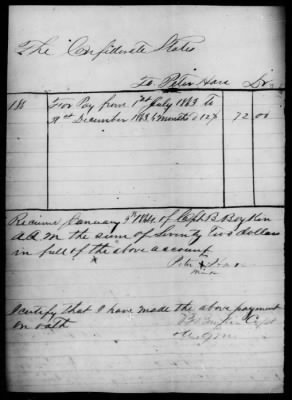 The Confederate States
To Peter Hare Dr
188
For Pay from 1st July 1863 To
31st December 1863 6 months @ 12 72.00
Received January 1864 of Capt B Boykin
A.Q.M the sum of Seventy Two dollars
in full of the above account
Peter X Hare
I certify that I have made the above payment
on oath
Capt